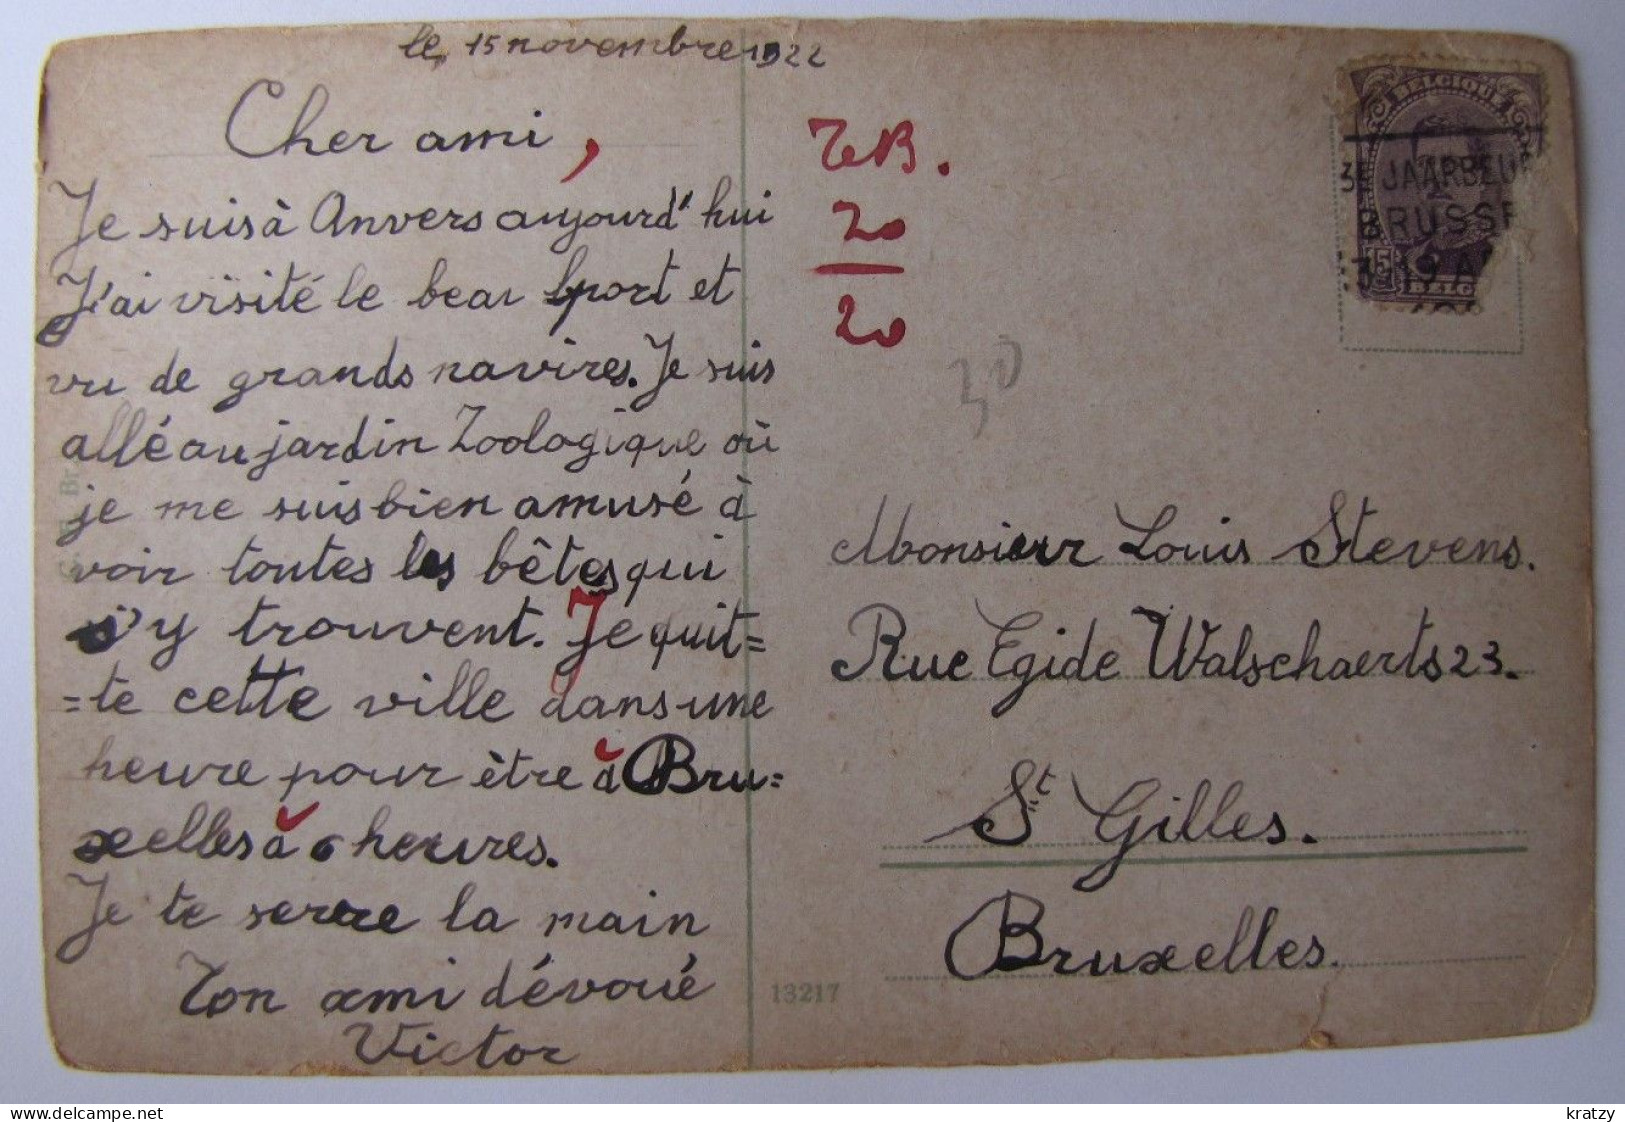 le 15 novembre 1922
Cher ami,
Je suis à Anvers aujourd'hui
J'ai visité le beau port et
vu de grands navires. Je suis
allé au jardin Zoologique où
je me suis bien amusé à
voir toutes les bêtes qui
s'y trouvent. Je quit=
=te cette ville dans une
heure pour être à Bru=
xelles à 6 heures.
Je te serre la main
Ton ami dévoué
Victor
TB.
20
20
30
BELGIQUE
JAARBEU
BRUSSE
15
BELG
Monsieur Louis Stevens.
Rue Egide Walschaerts 23.
St Gilles.
Bruxelles.
13217
kratzy